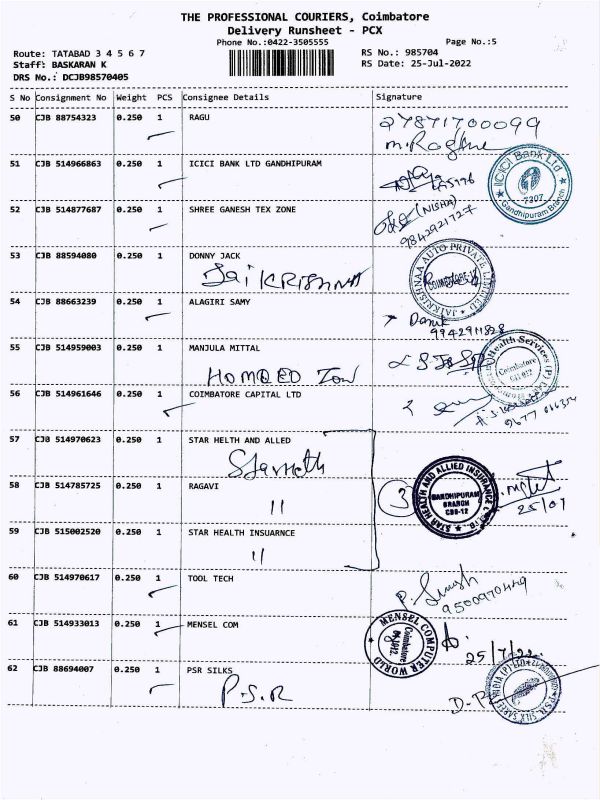 THE PROFESSIONAL COURIERS, Coimbatore
Delivery Runsheet - PCX
Phone No.:0422-3505555
Page No.:5
Route: TATABAD 3 4 5 6 7
RS No.: 985704
Staff: BASKARAN K
RS Date: 25-Jul-2022
DRS No.: DCJB98570405
S No Consignment No Weight PCS Consignee Details Signature
50 CJB 88754323 0.250 1 RAGU
27871700099
51 CJB 514966863 0.250 1 ICICI BANK LTD GANDHIPURAM
ICICI Bank Ltd
7307
Gandhipuram Branch
52 CJB 514877687 0.250 1 SHREE GANESH TEX ZONE
(NISHA)
9842921727
53 CJB 88594080 0.250 1 DONNY JACK
JAI KRISHNA
JAIKRISHNAA AUTO PRIVATE LIMITED
54 CJB 88663239 0.250 1 ALAGIRI SAMY
9942911828
55 CJB 514959003 0.250 1 MANJULA MITTAL
Health Services (P)
Coimbatore
641 012
56 CJB 514961646 0.250 1 COIMBATORE CAPITAL LTD
57 CJB 514970623 0.250 1 STAR HELTH AND ALLIED
58 CJB 514785725 0.250 1 RAGAVI
11
3
STAR HEALTH AND ALLIED INSURANCE
GANDHIPURAM
BRANCH
CBE-12
25/07
59 CJB 515002520 0.250 1 STAR HEALTH INSUARNCE
11
60 CJB 514970617 0.250 1 TOOL TECH
9500970449
61 CJB 514933013 0.250 1 MENSEL COM
MENSEL COMPUTER WORLD
Coimbatore
25/7/22
62 CJB 88694007 0.250 1 PSR SILKS
P.S.R